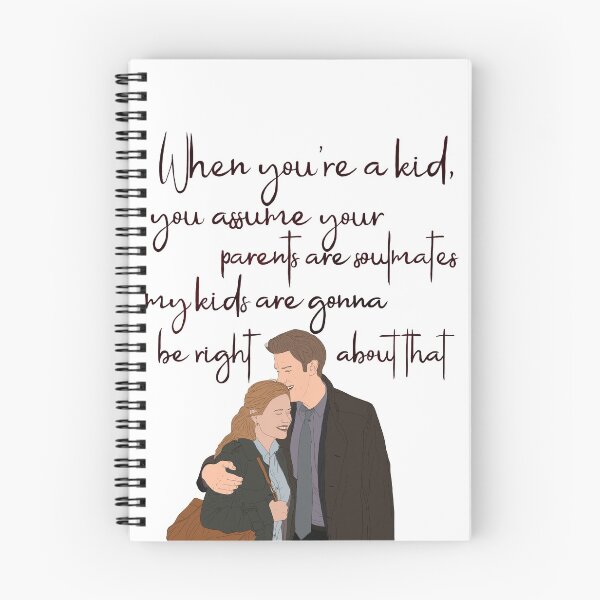 When you're a kid,
you assume your
parents are soulmates
my kids are gonna
be right about that